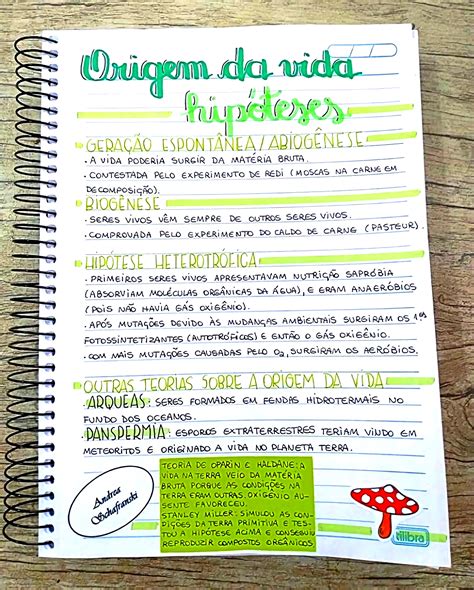 Origem da vida
hipóteses
GERAÇÃO ESPONTÂNEA/ABIOGÊNESE
• A VIDA PODERIA SURGIR DA MATÉRIA BRUTA.
• CONTESTADA PELO EXPERIMENTO DE REDI (MOSCAS NA CARNE EM
DECOMPOSIÇÃO).
BIOGÊNESE
• SERES VIVOS VÊM SEMPRE DE OUTROS SERES VIVOS.
• COMPROVADA PELO EXPERIMENTO DO CALDO DE CARNE (PASTEUR).
HIPÓTESE HETEROTRÓFICA
• PRIMEIROS SERES VIVOS APRESENTAVAM NUTRIÇÃO SAPRÓBIA
(ABSORVIAM MOLÉCULAS ORGÂNICAS DA ÁGUA), E ERAM ANAERÓBIOS
(POIS NÃO HAVIA GÁS OXIGÊNIO).
• APÓS MUTAÇÕES DEVIDO ÀS MUDANÇAS AMBIENTAIS SURGIRAM OS 1ºs
FOTOSSINTETIZANTES (AUTOTRÓFICOS) E ENTÃO O GÁS OXIGÊNIO.
• COM MAIS MUTAÇÕES CAUSADAS PELO O2, SURGIRAM OS AERÓBIOS.
OUTRAS TEORIAS SOBRE A ORIGEM DA VIDA
• ARQUEAS: SERES FORMADOS EM FENDAS HIDROTERMAIS NO
FUNDO DOS OCEANOS.
• PANSPERMIA: ESPOROS EXTRATERRESTRES TERIAM VINDO EM
METEORITOS E ORIGINADO A VIDA NO PLANETA TERRA.
TEORIA DE OPARIN E HALDANE: A
VIDA NA TERRA VEIO DA MATÉRIA
BRUTA PORQUE AS CONDIÇÕES NA
TERRA ERAM OUTRAS. OXIGÊNIO AU-
SENTE FAVORECEU.
STANLEY MILLER: SIMULOU AS CON-
DIÇÕES DA TERRA PRIMITIVA E TES-
TOU A HIPÓTESE ACIMA E CONSEGUIU
REPRODUZIR COMPOSTOS ORGÂNICOS
Andrea
Schafranski
tilibra